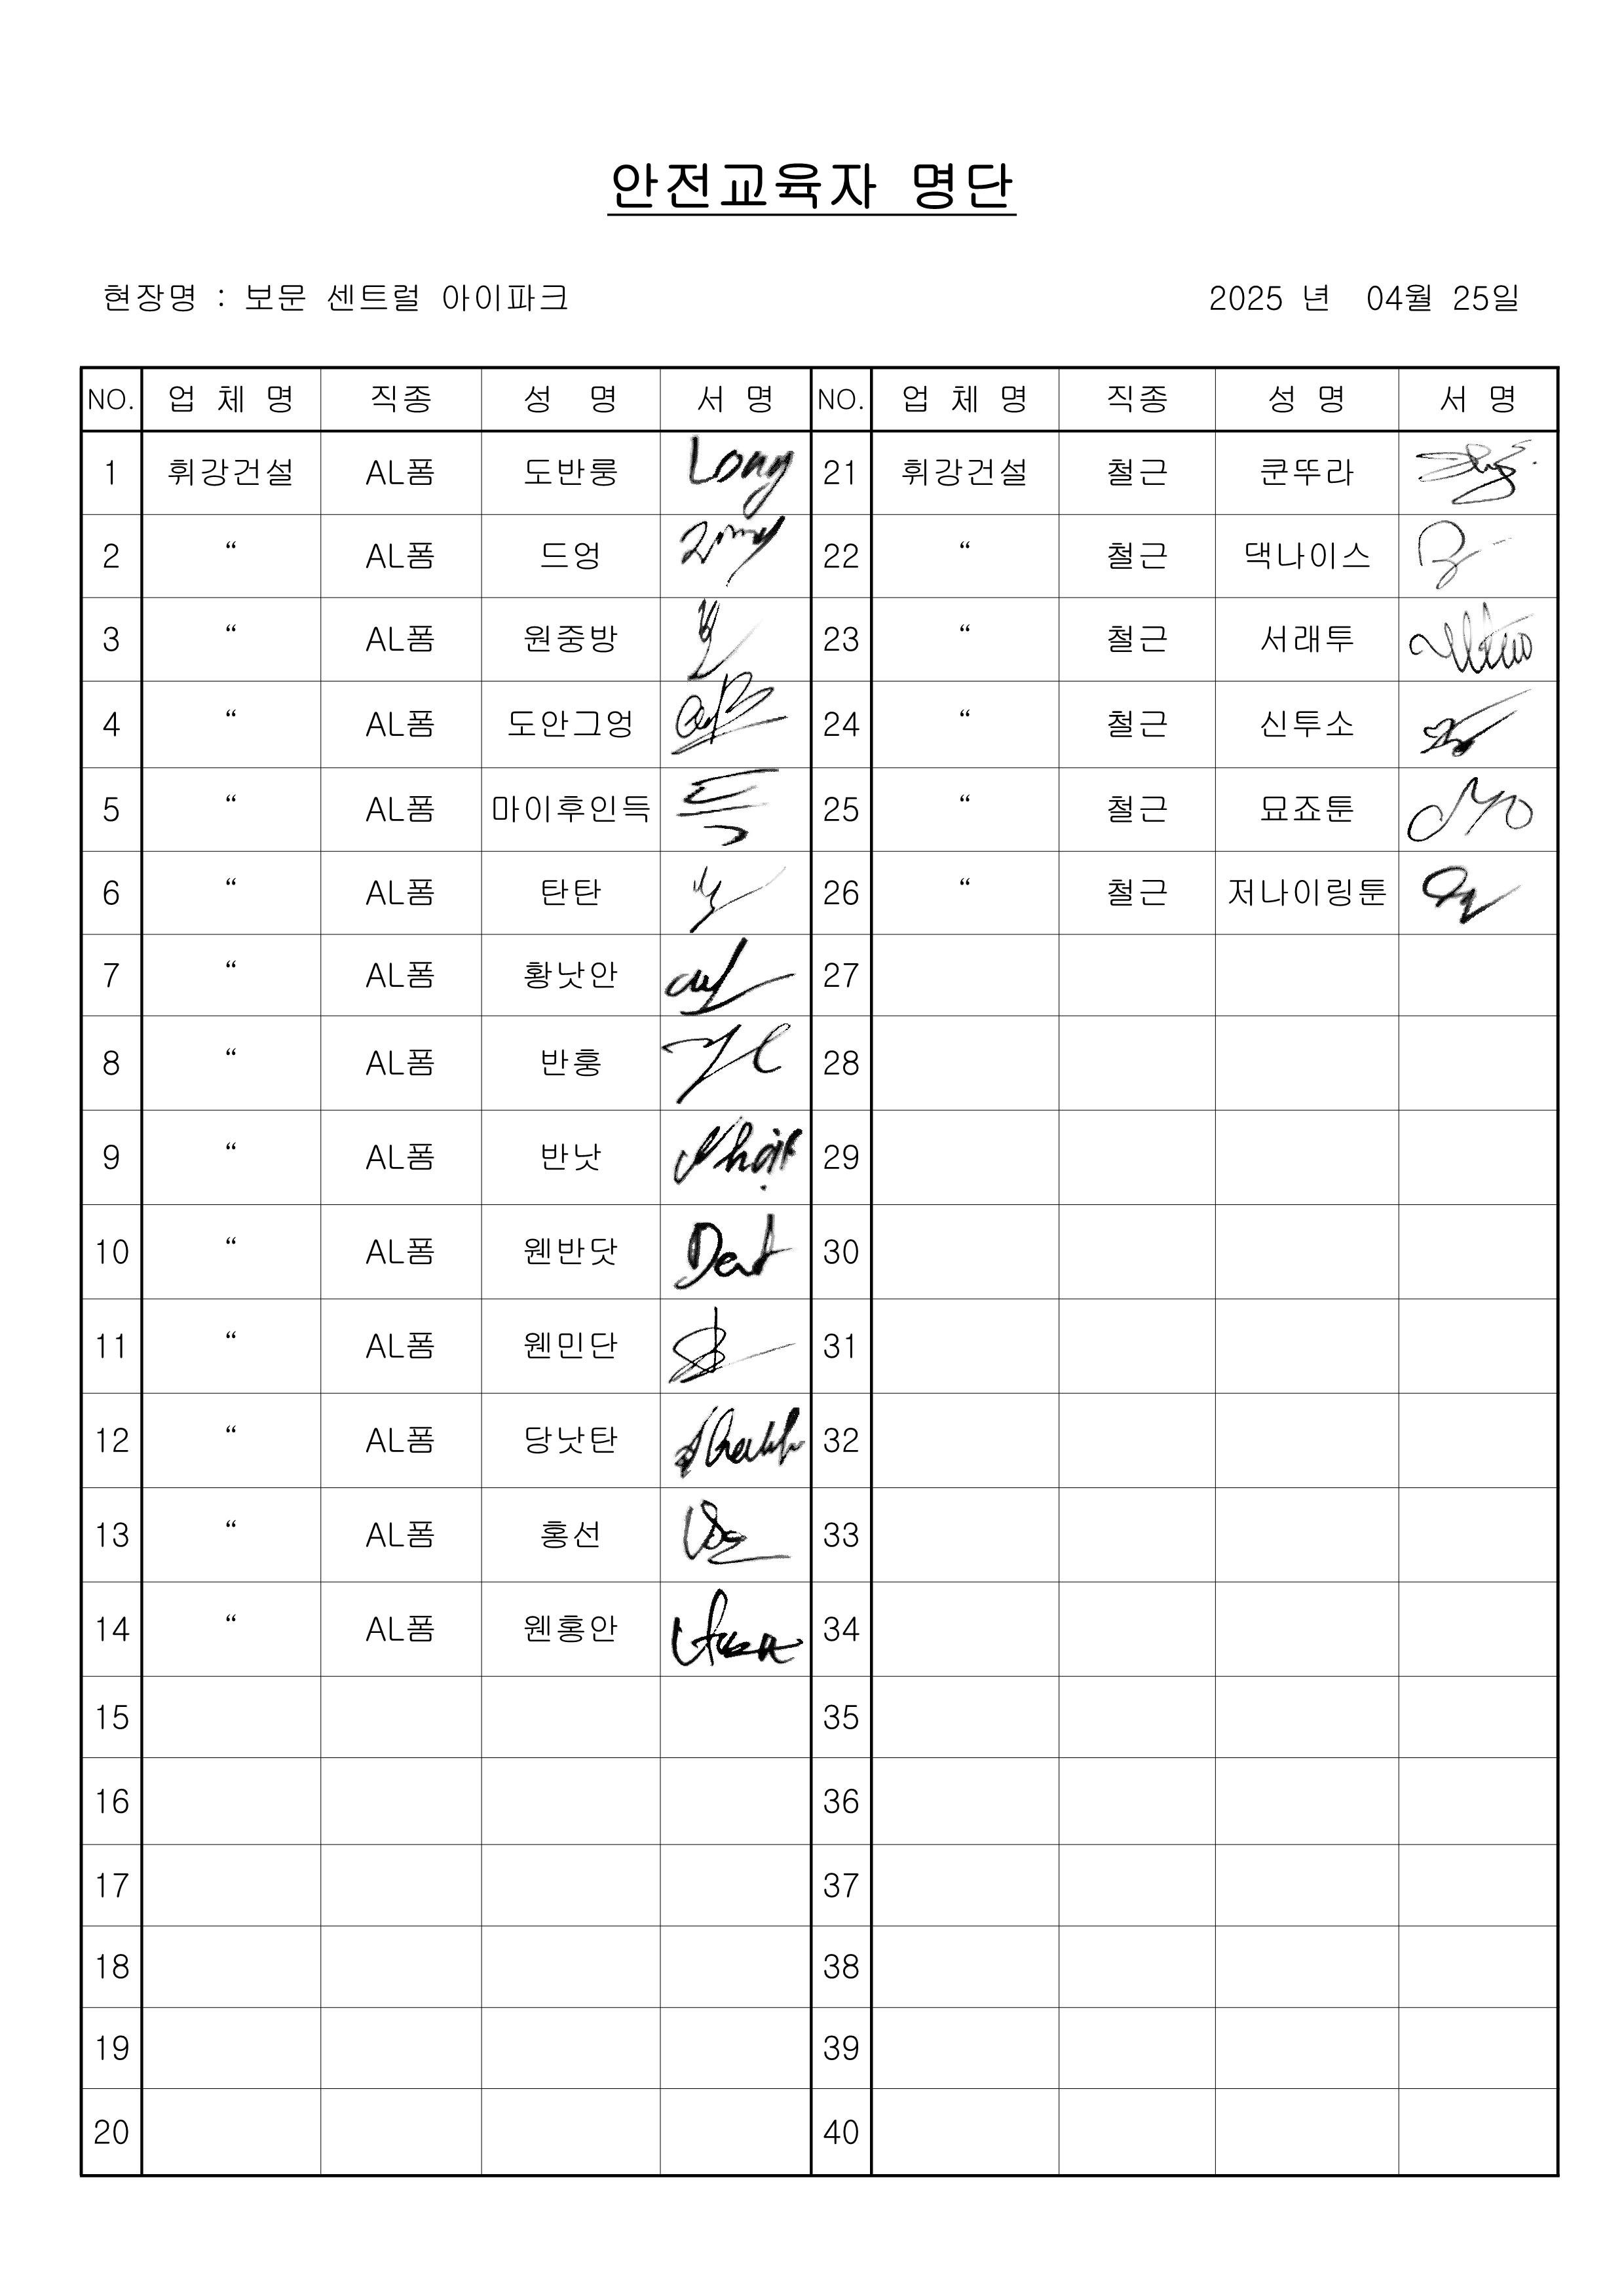 안전교육자 명단
현장명 : 보문 센트럴 아이파크 2025 년 04월 25일
NO. 업 체 명 직종 성 명 서 명 NO. 업 체 명 직종 성 명 서 명
1 휘강건설 AL폼 도반룽 Long 21 휘강건설 철근 쿤뚜라
2 “ AL폼 드엉 22 “ 철근 댁나이스
3 “ AL폼 원중방 23 “ 철근 서래투
4 “ AL폼 도안그엉 24 “ 철근 신투소
5 “ AL폼 마이후인득 득 25 “ 철근 묘죠툰 Myo
6 “ AL폼 탄탄 26 “ 철근 저나이링툰
7 “ AL폼 황낫안 27
8 “ AL폼 반흥 28
9 “ AL폼 반낫 Nhật 29
10 “ AL폼 웬반닷 30
11 “ AL폼 웬민단 31
12 “ AL폼 당낫탄 32
13 “ AL폼 홍선 33
14 “ AL폼 웬홍안 34
15 35
16 36
17 37
18 38
19 39
20 40